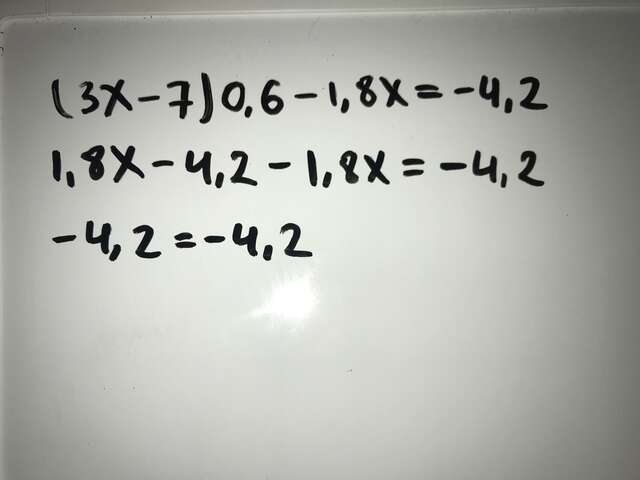 (3x-7)0,6-1,8x=-4,2
1,8x-4,2-1,8x=-4,2
-4,2=-4,2